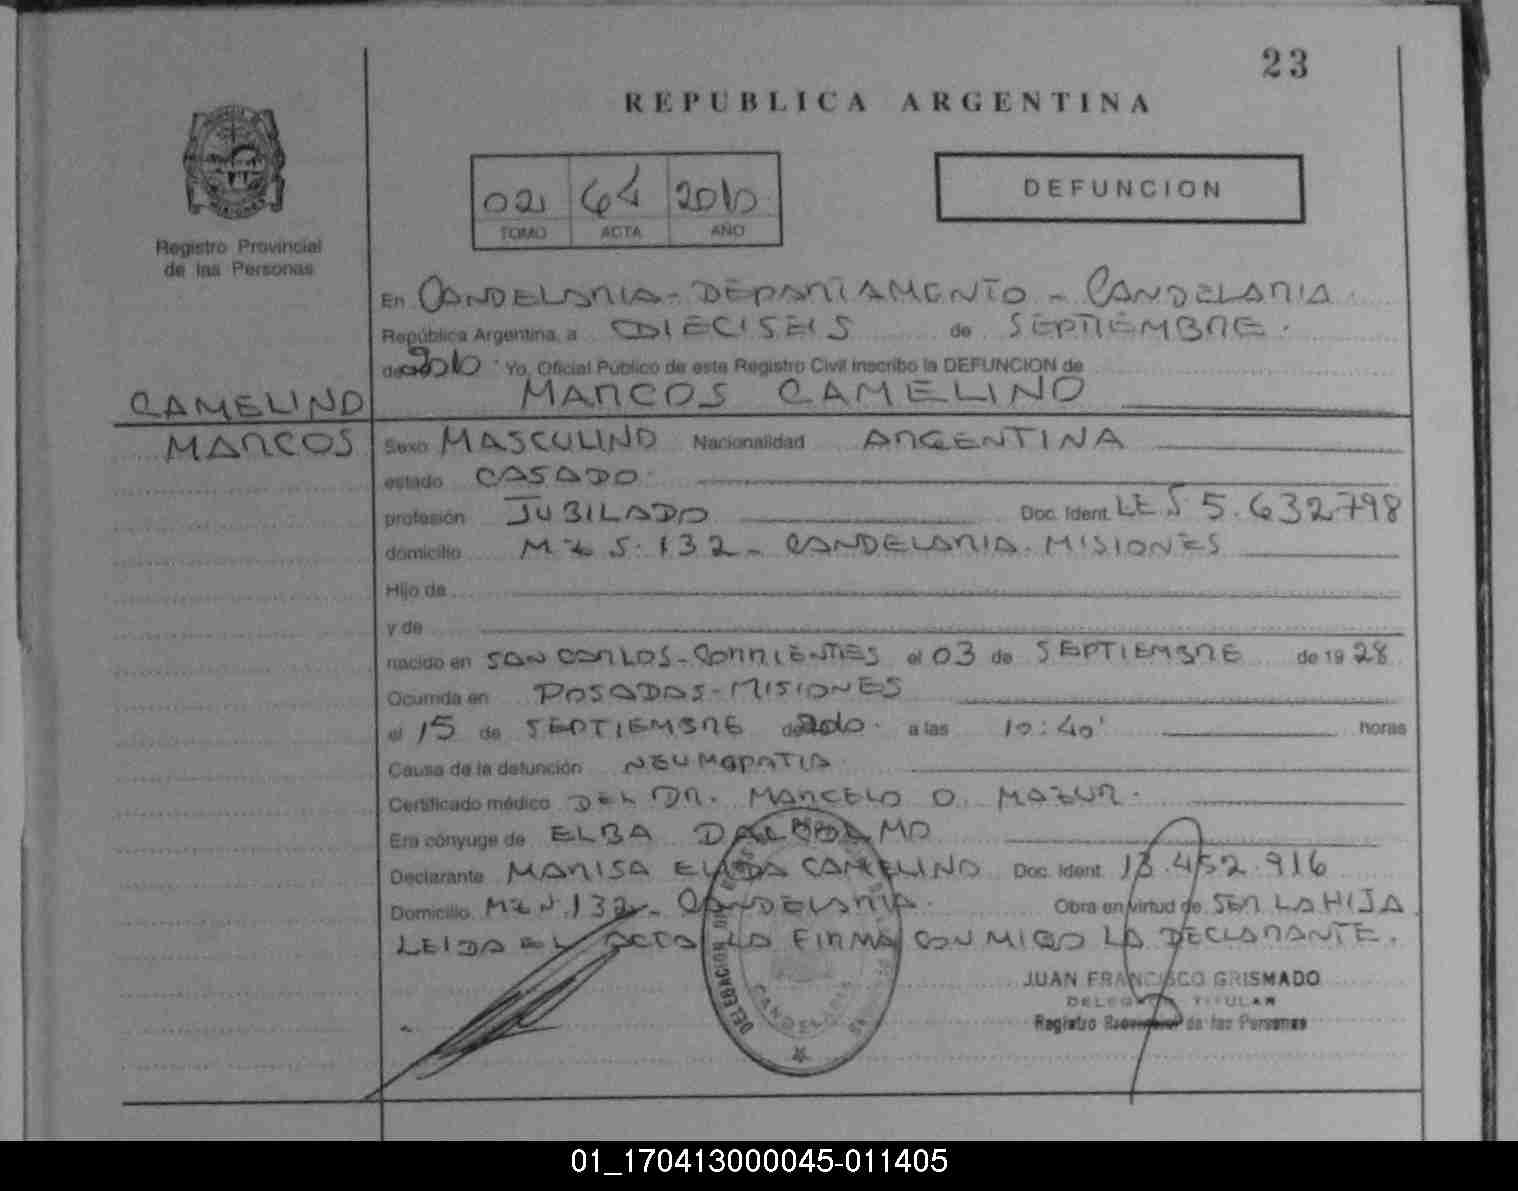 23
REPUBLICA ARGENTINA
02 64 2010
TOMO ACTA AÑO
DEFUNCION
MISIONES
Registro Provincial
de las Personas
En CANDELARIA - DEPARTAMENTO - CANDELARIA
República Argentina, a DIECISEIS de SEPTIEMBRE
de 2010 Yo, Oficial Público de este Registro Civil inscribo la DEFUNCION de
MARCOS CAMELINO
CAMELINO
MARCOS
Sexo MASCULINO Nacionalidad ARGENTINA
estado CASADO
profesión JUBILADO Doc. Ident. LE 5.632798
domicilio MZ S. 132 - CANDELARIA. MISIONES
Hijo de
y de
nacido en SAN CARLOS - CORRIENTES el 03 de SEPTIEMBRE de 19 28
Ocurrida en POSADAS - MISIONES
el 15 de SEPTIEMBRE de 2010 a las 10:40' horas
Causa de la defunción NEUMOPATIA
Certificado médico DEL DR. MARCELO O. MAZUR.
Era cónyuge de ELBA
Declarante MARISA CAMELINO Doc. Ident. 13.452.916
Domicilio MZ N. 132 - CANDELARIA. Obra en virtud de SER LA HIJA
LEIDA EL ACTA LA FIRMA CONMIGO LA DECLARANTE.
JUAN FRANCISCO GRISMADO
DELEGADO TITULAR
Registro Provincial de las Personas
DELEGACION
CANDELARIA
01_170413000045-011405